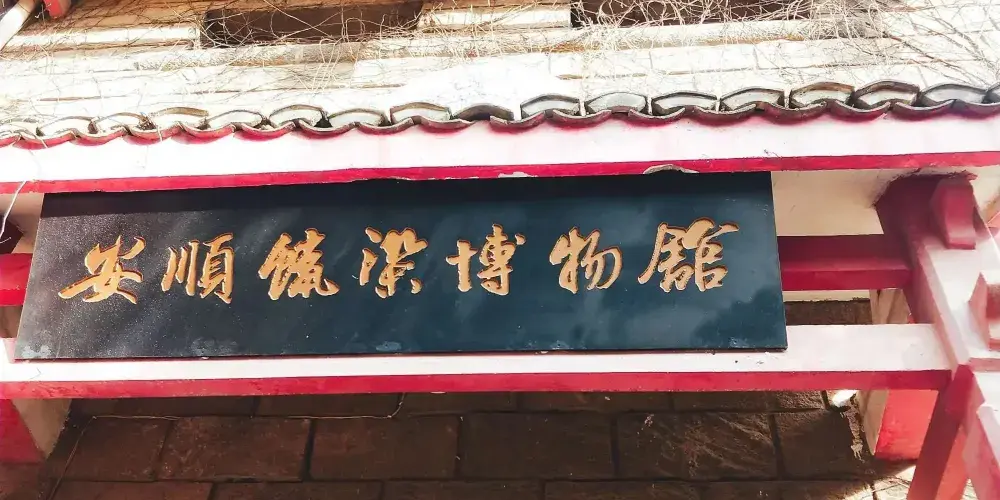 安順蠟染博物館